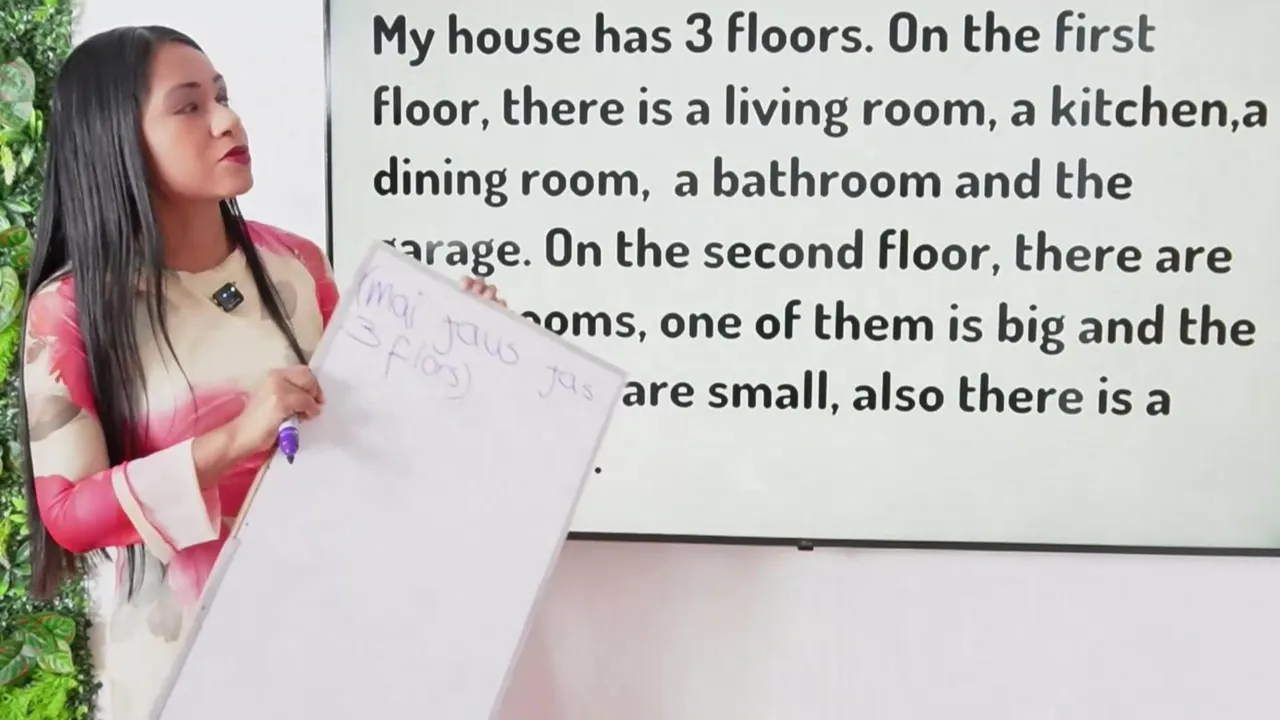 My house has 3 floors. On the first
floor, there is a living room, a kitchen,a
dining room, a bathroom and the
garage. On the second floor, there are
ooms, one of them is big and the
are small, also there is a
.
(mai jaus jas
3 flors)